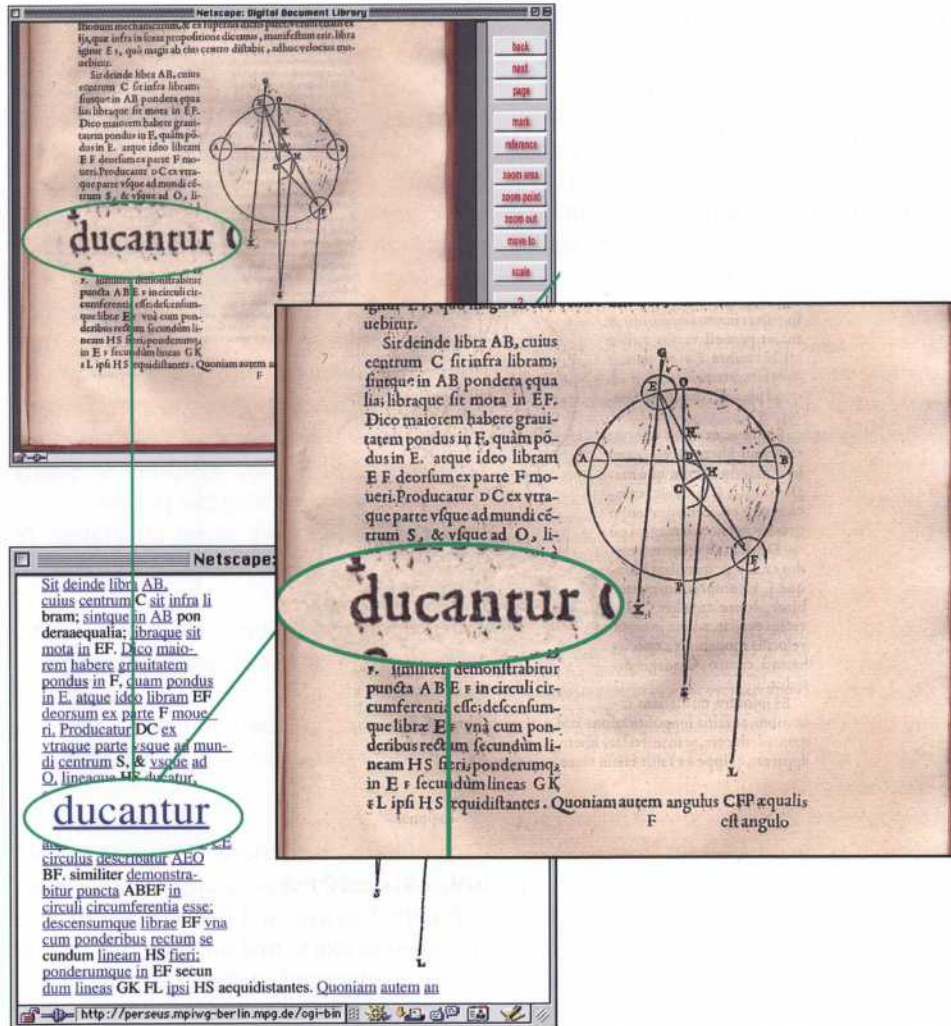 Netscape: Digital Document Library
lijs, quæ infra in hoc propositione dicemus, manifestum erit. libra
igitur E F, quò magis ab eius centro distabit, adhuc velocius mo-
uebitur.
Sit deinde libra AB, cuius
centrum C sit infra libram;
sintque in AB pondera equa
lia; libraque sit mota in EF.
Dico maiorem habere graui-
tatem pondus in F, quàm pō-
dus in E. atque ideo libram
E F deorsum ex parte F mo-
ueri. Producatur D C ex vtra-
que parte vsque ad mundi cē-
trum S, & vsque ad O, li-
ducantur
F. similiter demonstrabitur
puncta A B E F in circuli cir-
cumferentia esse; descensum-
que libræ E F vnà cum pon-
deribus rectum secundùm li-
neam HS fieri, ponderumq;
in E F secundùm lineas GK
F L ipsi HS æquidistantes. Quoniam autem a
F
G
E O
N
A D B
H
C
F
P
K
S
back
next
page
mark
reference
zoom area
zoom point
zoom out
move to
scale
?
uebitur.
Sit deinde libra AB, cuius
centrum C sit infra libram;
sintque in AB pondera equa
lia; libraque sit mota in EF.
Dico maiorem habere graui-
tatem pondus in F, quàm pō-
dus in E. atque ideo libram
E F deorsum ex parte F mo-
ueri. Producatur D C ex vtra-
que parte vsque ad mundi cē-
trum S, & vsque ad O, li-
ducantur
F. similiter demonstrabitur
puncta A B E F in circuli cir-
cumferentia esse; descensum-
que libræ E F vnà cum pon-
deribus rectum secundùm li-
neam HS fieri, ponderumq;
in E F secundùm lineas GK
F L ipsi HS æquidistantes. Quoniam autem angulus CFP æqualis
F est angulo
G
E O
N
A D B
H
C
F
P
K
S
L
Netscape:
Sit deinde libra AB,
cuius centrum C sit infra li
bram; sintque in AB pon
deraaequalia; libraque sit
mota in EF. Dico maio-
rem habere grauitatem
pondus in F, quam pondus
in E. atque ideo libram EF
deorsum ex parte F moue-
ri. Producatur DC ex
vtraque parte vsque ad mun-
di centrum S, & vsque ad
O, lineaque HS ducatur,
ducantur
CE
circulus describatur AEO
BF. similiter demonstra-
bitur puncta ABEF in
circuli circumferentia esse;
descensumque librae EF vna
cum ponderibus rectum se
cundum lineam HS fieri;
ponderumque in EF secun
dum lineas GK FL ipsi HS aequidistantes. Quoniam autem an
S
L
http://perseus.mpiwg-berlin.mpg.de/cgi-bin